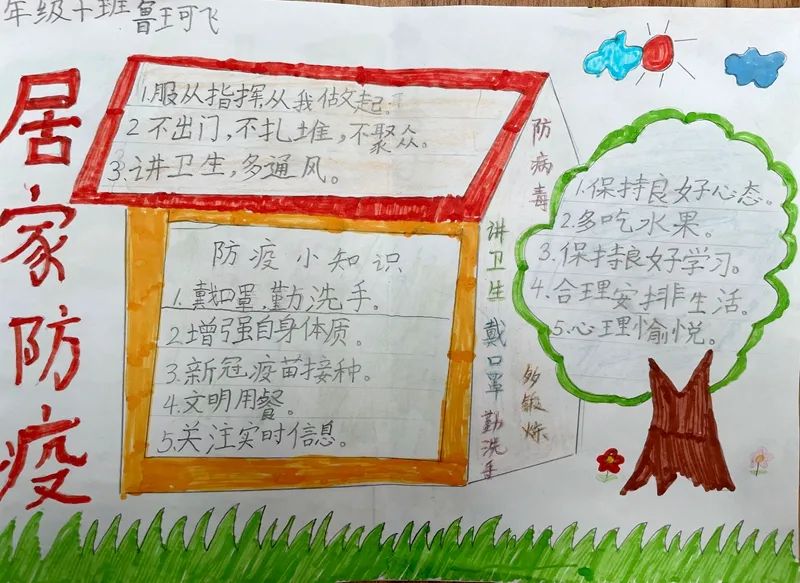 年级十班 鲁珂飞
居家防疫
1.服从指挥,从我做起。
2 不出门,不扎堆,不聚众。
3.讲卫生,多通风。
防疫小知识
1.戴口罩,勤洗手。
2.增强自身体质。
3.新冠疫苗接种。
4.文明用餐。
5.关注实时信息。
防病毒
讲卫生
戴口罩
勤洗手
多锻炼
1.保持良好心态。
2.多吃水果。
3.保持良好学习。
4.合理安排生活。
5.心理愉悦。